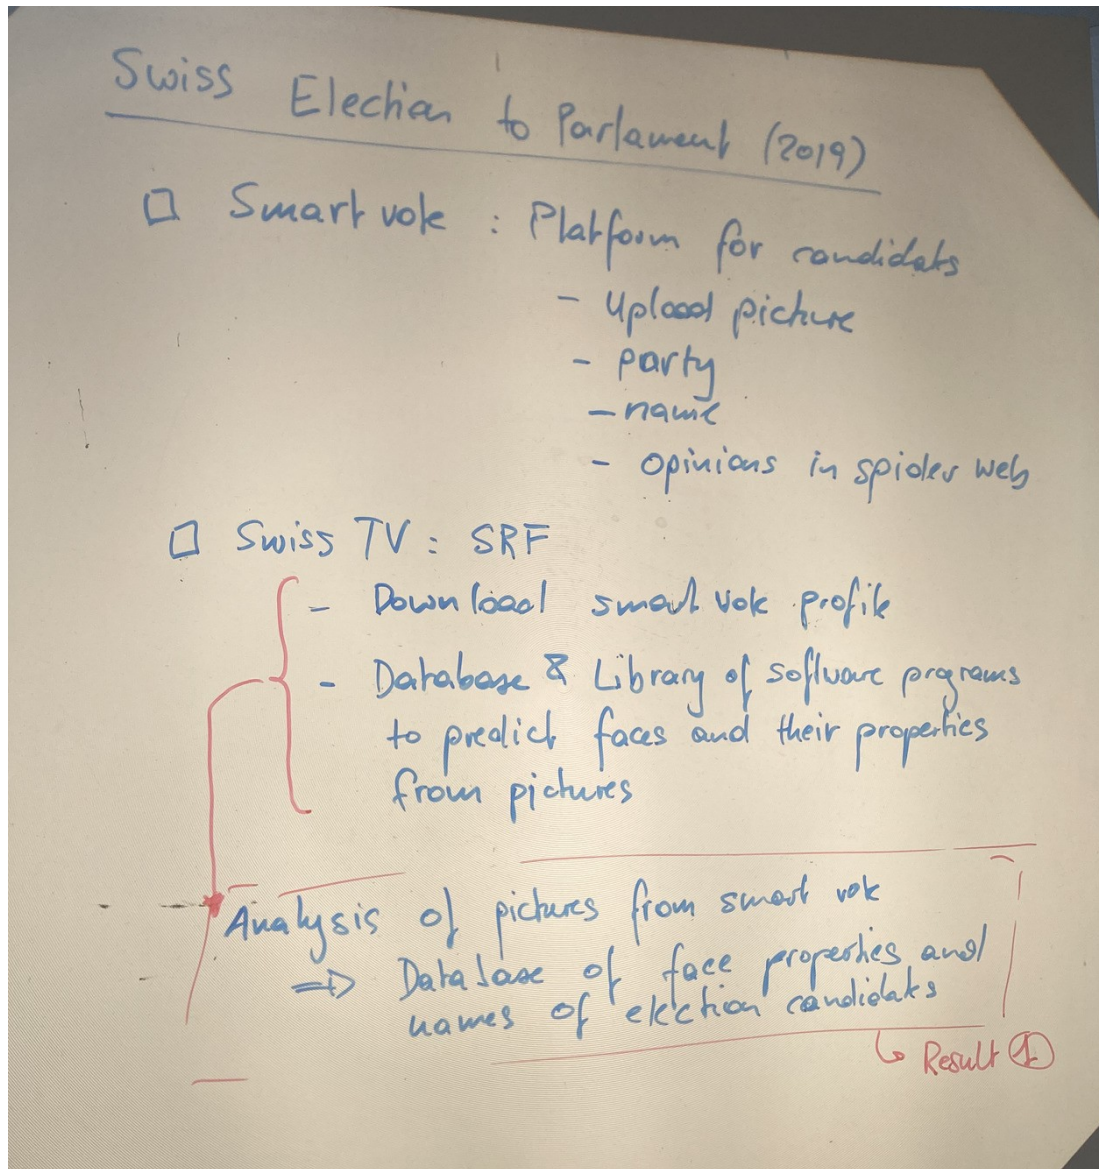 Swiss Election to Parlament (2019)
□ Smart vote : Platform for candidats
- Upload picture
- party
- name
- opinions in spider web
□ Swiss TV : SRF
- Download smart vote profile
- Database & Library of software programs
to predict faces and their properties
from pictures
Analysis of pictures from smart vote
⇒ Database of face properties and
names of election candidats
↳ Result ①